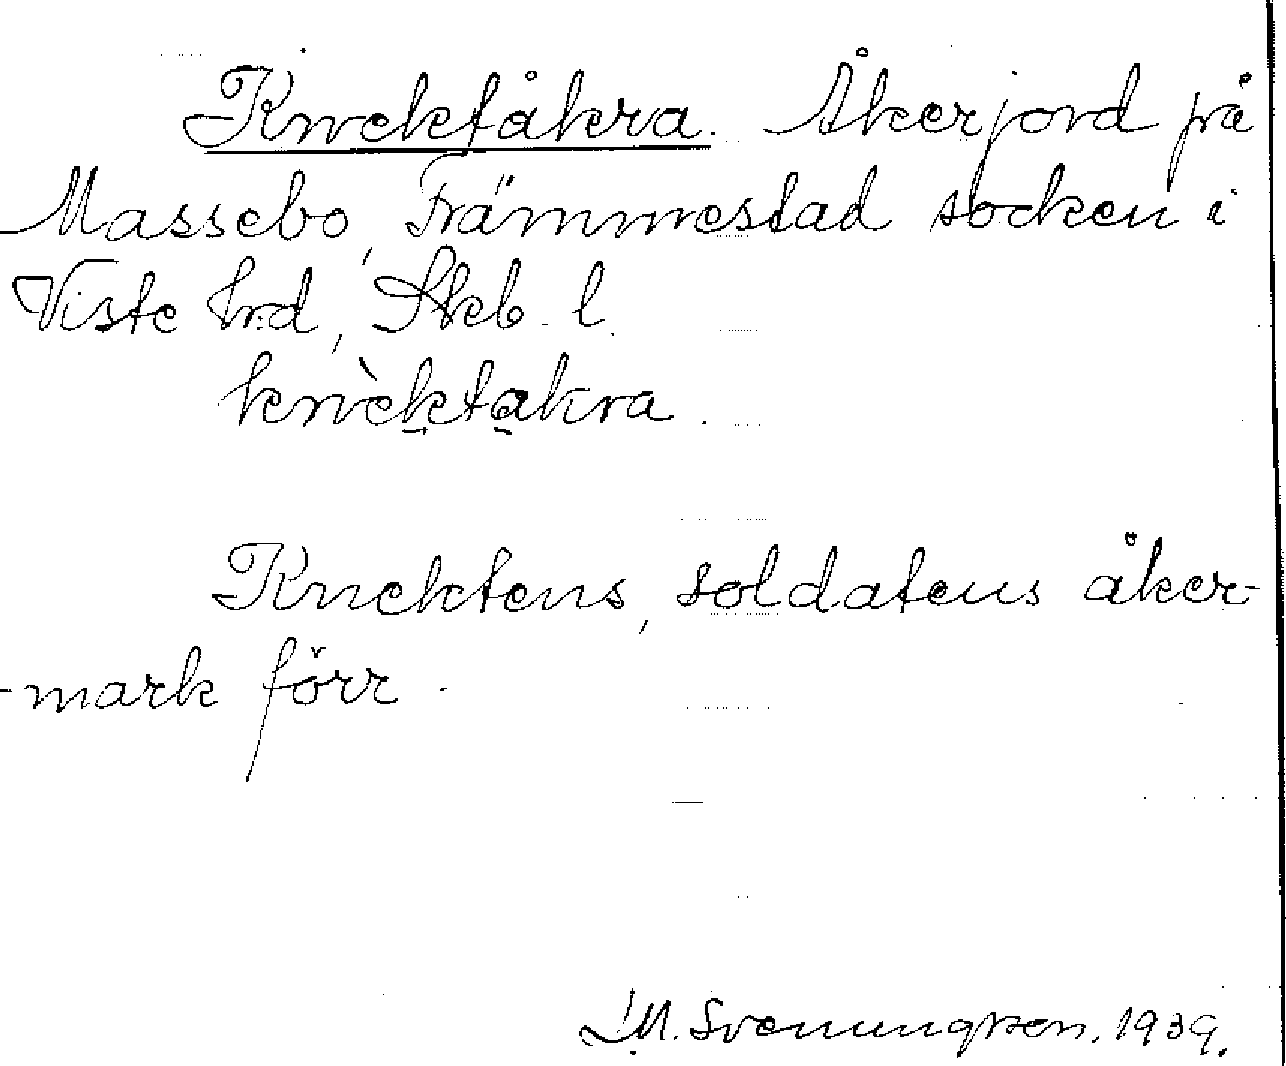 Knektåkra. Åkerjord på
Massebo, Främmestad socken i
Viste hrd, Skb. l.
knèk̲ta̲kra.
Knektens, soldatens åker-
-mark förr.
I.M. Svenungsson. 1939.